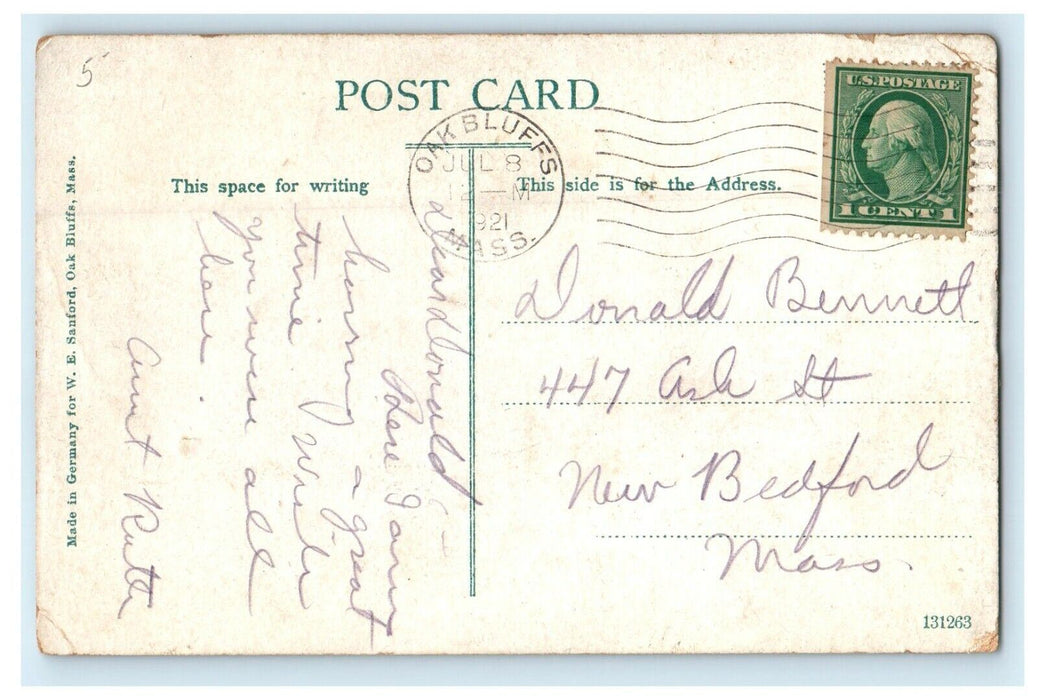 5
POST CARD
OAK BLUFFS
JUL 8
12 — M
1921
MASS.
U.S. POSTAGE
1 CENT 1
This space for writing
This side is for the Address.
Dear Donald
Here I am
having a great
time I wish
you were all
here
Aunt Ruth
Donald Bennett
447 Ash St
New Bedford
Mass.
Made in Germany for W. E. Sanford, Oak Bluffs, Mass.
131263